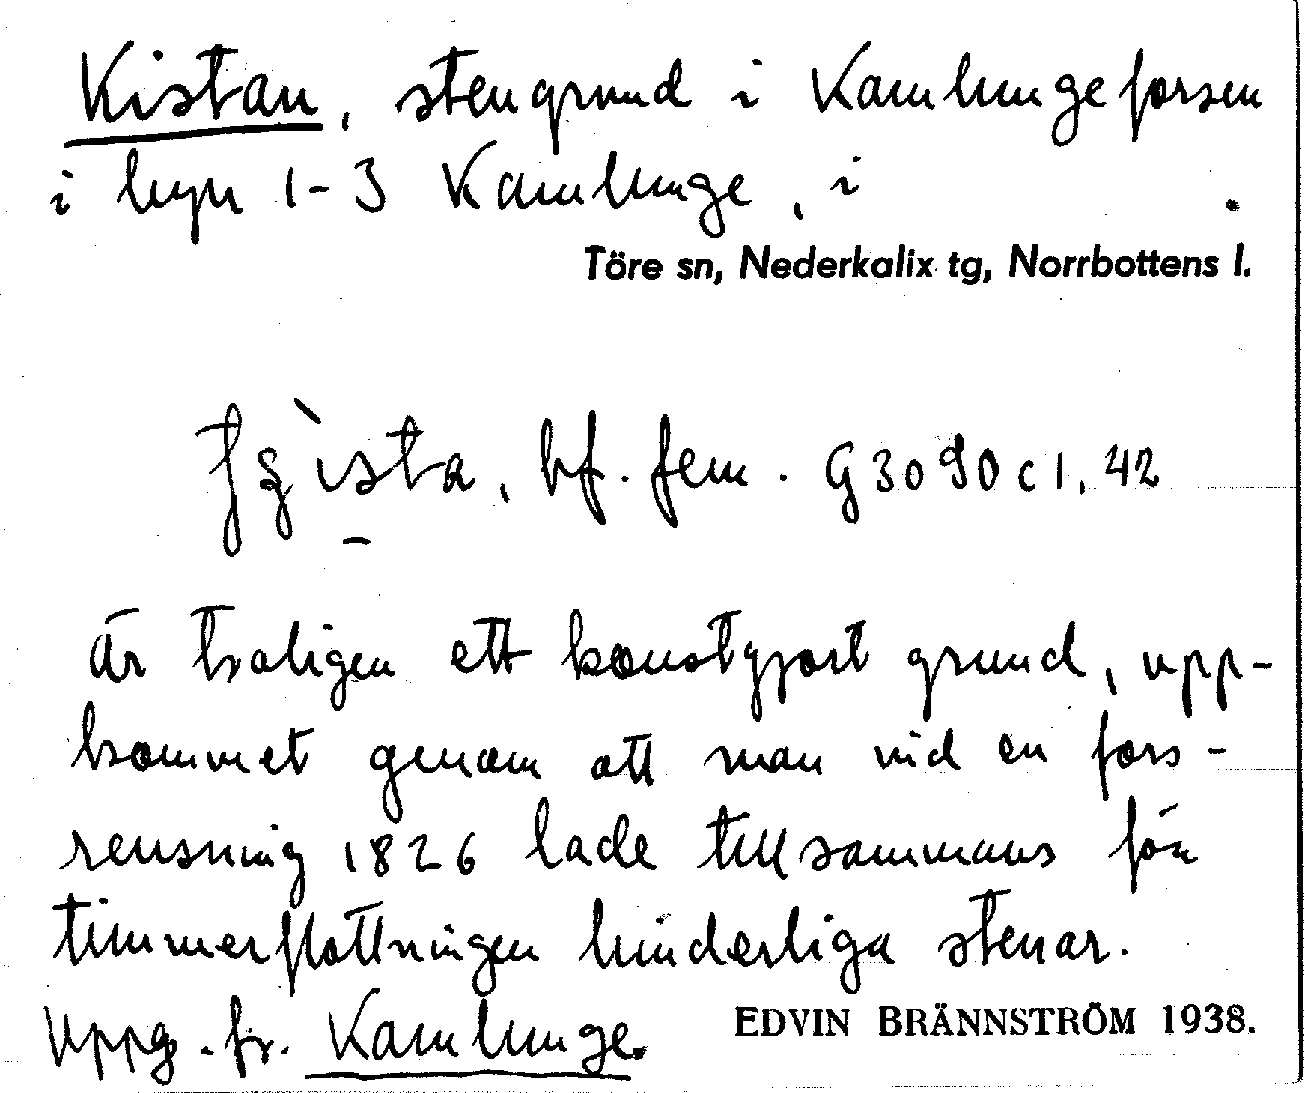 Kistan, stengrund i Kamlungeforsen
i byn 1-3 Kamlunge, i .
Töre sn, Nederkalix tg, Norrbottens l.
bf. fem. G3090c1, 42
är troligen ett konstgjort grund, upp-
kommet genom att man vid en fors-
rensning 1826 lade tillsammans för
timmerflottningen hinderliga stenar.
Uppg. fr. Kamlunge.
EDVIN BRÄNNSTRÖM 1938.